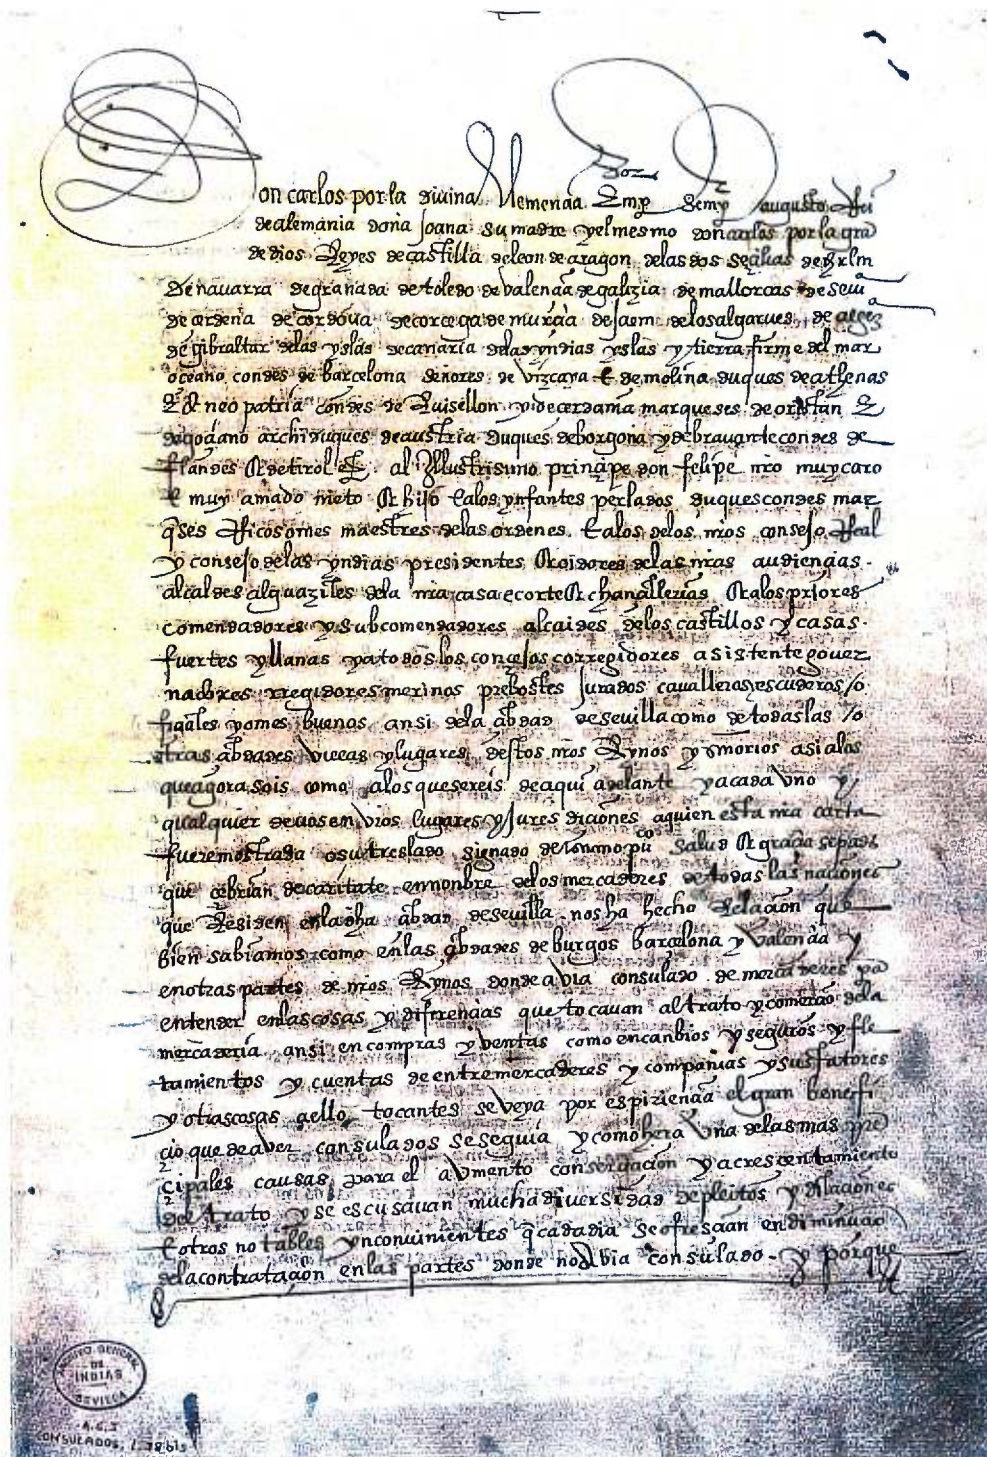 Don carlos por la divina clemencia Empor semp augusto Rei
de alemania doña Joana su madre y el mesmo don carlos por la gra
de dios Reyes de castilla de leon de aragon de las dos secilias de hrlm
de navarra de granada de toledo de valencia de galizia de mallorcas de sevia
de cerdeña de cordova de corcega de murcia de jaem de los algarves de algez
de gibraltar de las yslas de canaria de las yndias yslas y tierra firme del mar
oceano condes de barcelona señores de vizcaya E de molina duques de athenas
E de neo patria condes de Ruisellon y de cerdania marqueses de oristan E
de goçiano archiduques de austria duques de borgoña y de bravante condes de
flandes E de tirol etc. al Yllustrisimo principe don felipe nro muy caro
E muy amado nieto E hijo E a los ynfantes perlados duques condes mar
qses Ricos omes maestres de las ordenes E a los de los nros consejo Real
y consejo de las yndias presidentes E oidores de las nras audiencias
alcaldes alguaziles de la nra casa e corte E chançillerias E a los priores
comendadores y subcomendadores alcaides de los castillos y casas
fuertes y llanas y a todos los concejos corregidores asistente gover
nadores rregidores merinos prebostes jurados cavalleros escuderos /o
ficiales y omes buenos ansi de la cibdad de sevilla como de todas las /o
tras cibdades villas y lugares destos nros Rynos y señorios asi a los
que agora sois como a los que sereis de aqui adelante y a cada uno y
qualquier de vos en vros lugares y juresdiciones a quien esta nra carta
fuere mostrada o su treslado signado de scrivano puco Salud E gracia sepades
que cebrian de caritate en nonbre de los mercaderes de todas las naciones
que Residen en la dha cibdad de sevilla nos ha hecho Relacion que
bien sabiamos como en las cibdades de burgos barcelona y valencia y
en otras partes de nros Rynos donde avia consulado de mercaderes pa
entender en las cosas y diferencias que tocavan al trato y comercio de la
mercaderia ansi en compras y ventas como en canbios y seguros y fle
tamientos y cuentas de entre mercaderes y compañias y sus fatores
y otras cosas a ello tocantes se veya por espiriencia el gran benefi
cio que de aver consulados se seguia y como hera una de las mas prin
cipales causas para el avmento conservacion y acrescentamiento
del trato y se escusavan mucha diversidad de pleitos y dilaciones
E otros notables ynconvinientes q cada dia se ofrescian en diminucio
de la contratacion en las partes donde no abia consulado y porque
ARCHIVO GENERAL
DE
INDIAS
SEVILLA
A.G.I
CONSULADOS, L.